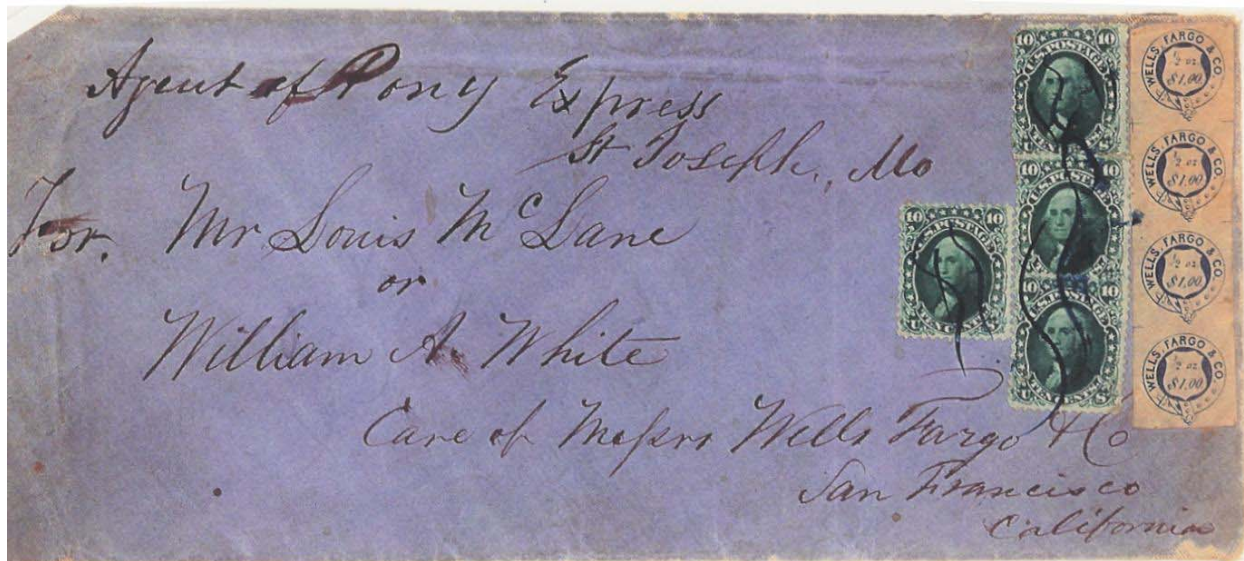 Agent of Pony Express
St Joseph, Mo
For. Mr Louis McLane
or
William A. White
Care of Messrs Wells Fargo & Co
San Francisco
California
10 10
U.S. POSTAGE
TEN CENTS
U S
10 10
U.S. POSTAGE
10 10
U.S. POSTAGE
TEN CENTS
U S
10 10
U.S. POSTAGE
TEN CENTS
U S
WELLS, FARGO & CO
½ oz
$1,00
WELLS, FARGO & CO
½ oz
$1,00
WELLS, FARGO & CO
½ oz
$1,00
WELLS, FARGO & CO
½ oz
$1,00